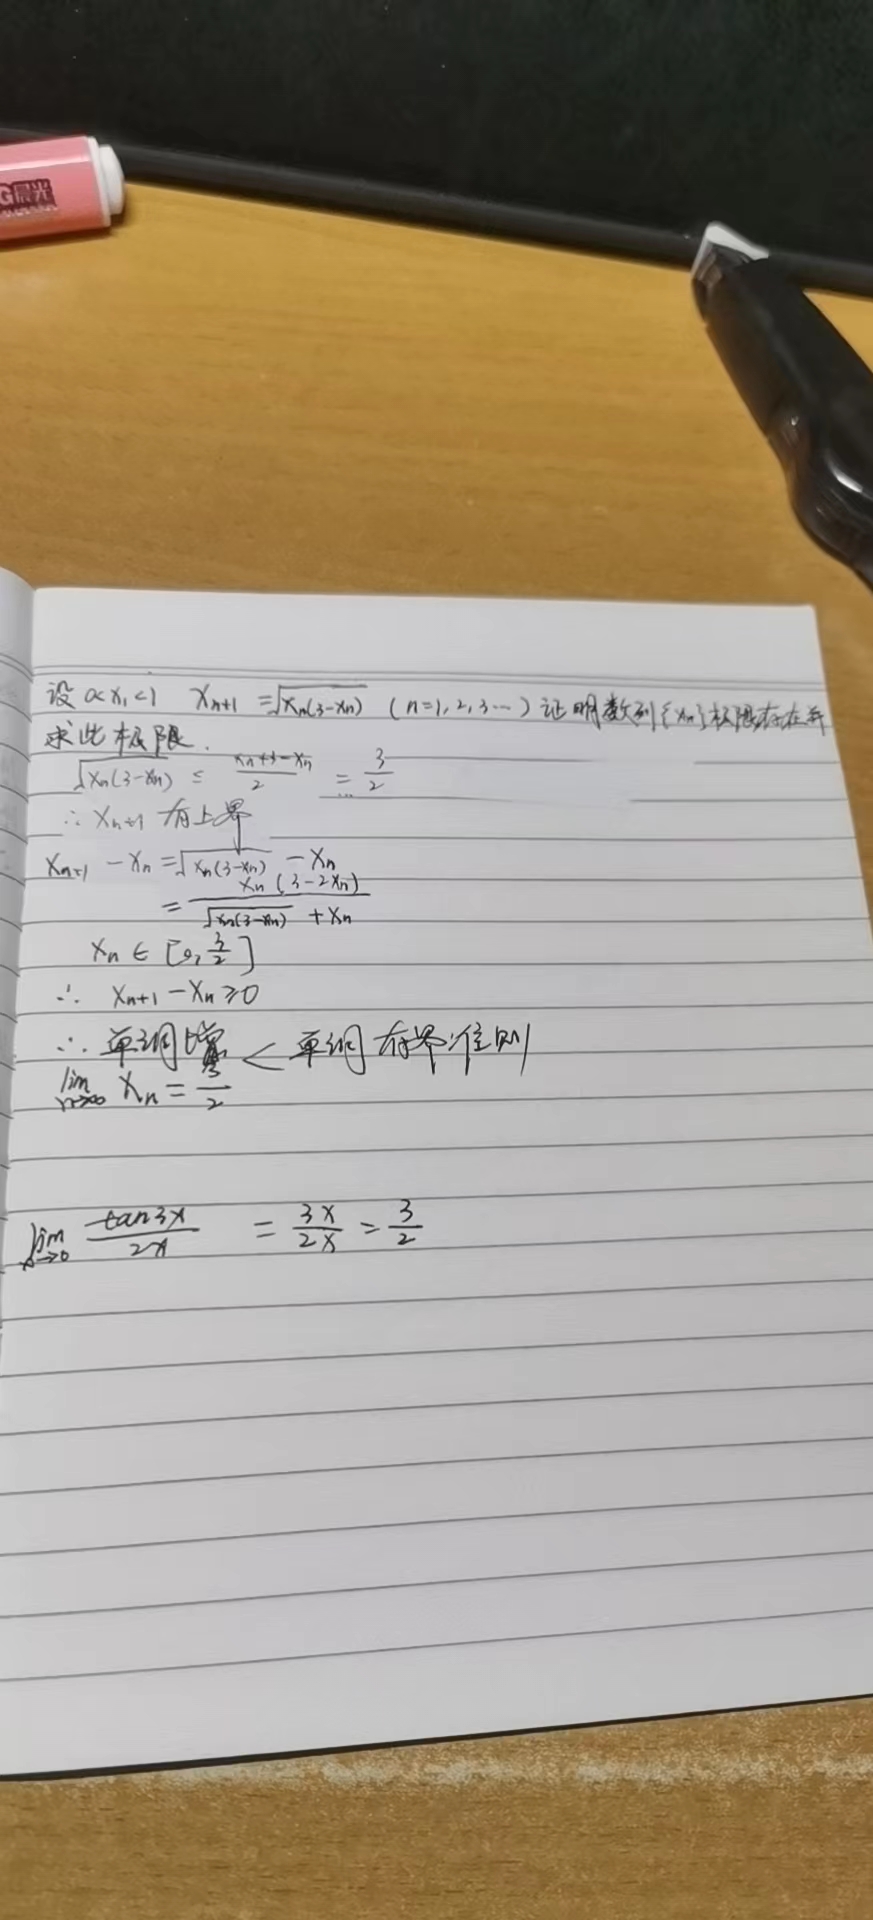 G晨光
设 0<x₁<1 xₙ₊₁ =√(xₙ(3-xₙ)) (n=1,2,3…) 证明数列{xₙ}极限存在并
求此极限.
√(xₙ(3-xₙ)) ≤ (xₙ+3-xₙ)/2 = 3/2
∴ xₙ₊₁ 有上界
xₙ₊₁ - xₙ = √(xₙ(3-xₙ)) - xₙ
= xₙ(3-2xₙ)/(√(xₙ(3-xₙ)) + xₙ)
xₙ ∈ [0, 3/2]
∴ xₙ₊₁ - xₙ ≥ 0
∴ 单调增 < 单调有界准则
lim n→∞ xₙ = 3/2
lim x→0 tan3x/2x = 3x/2x = 3/2